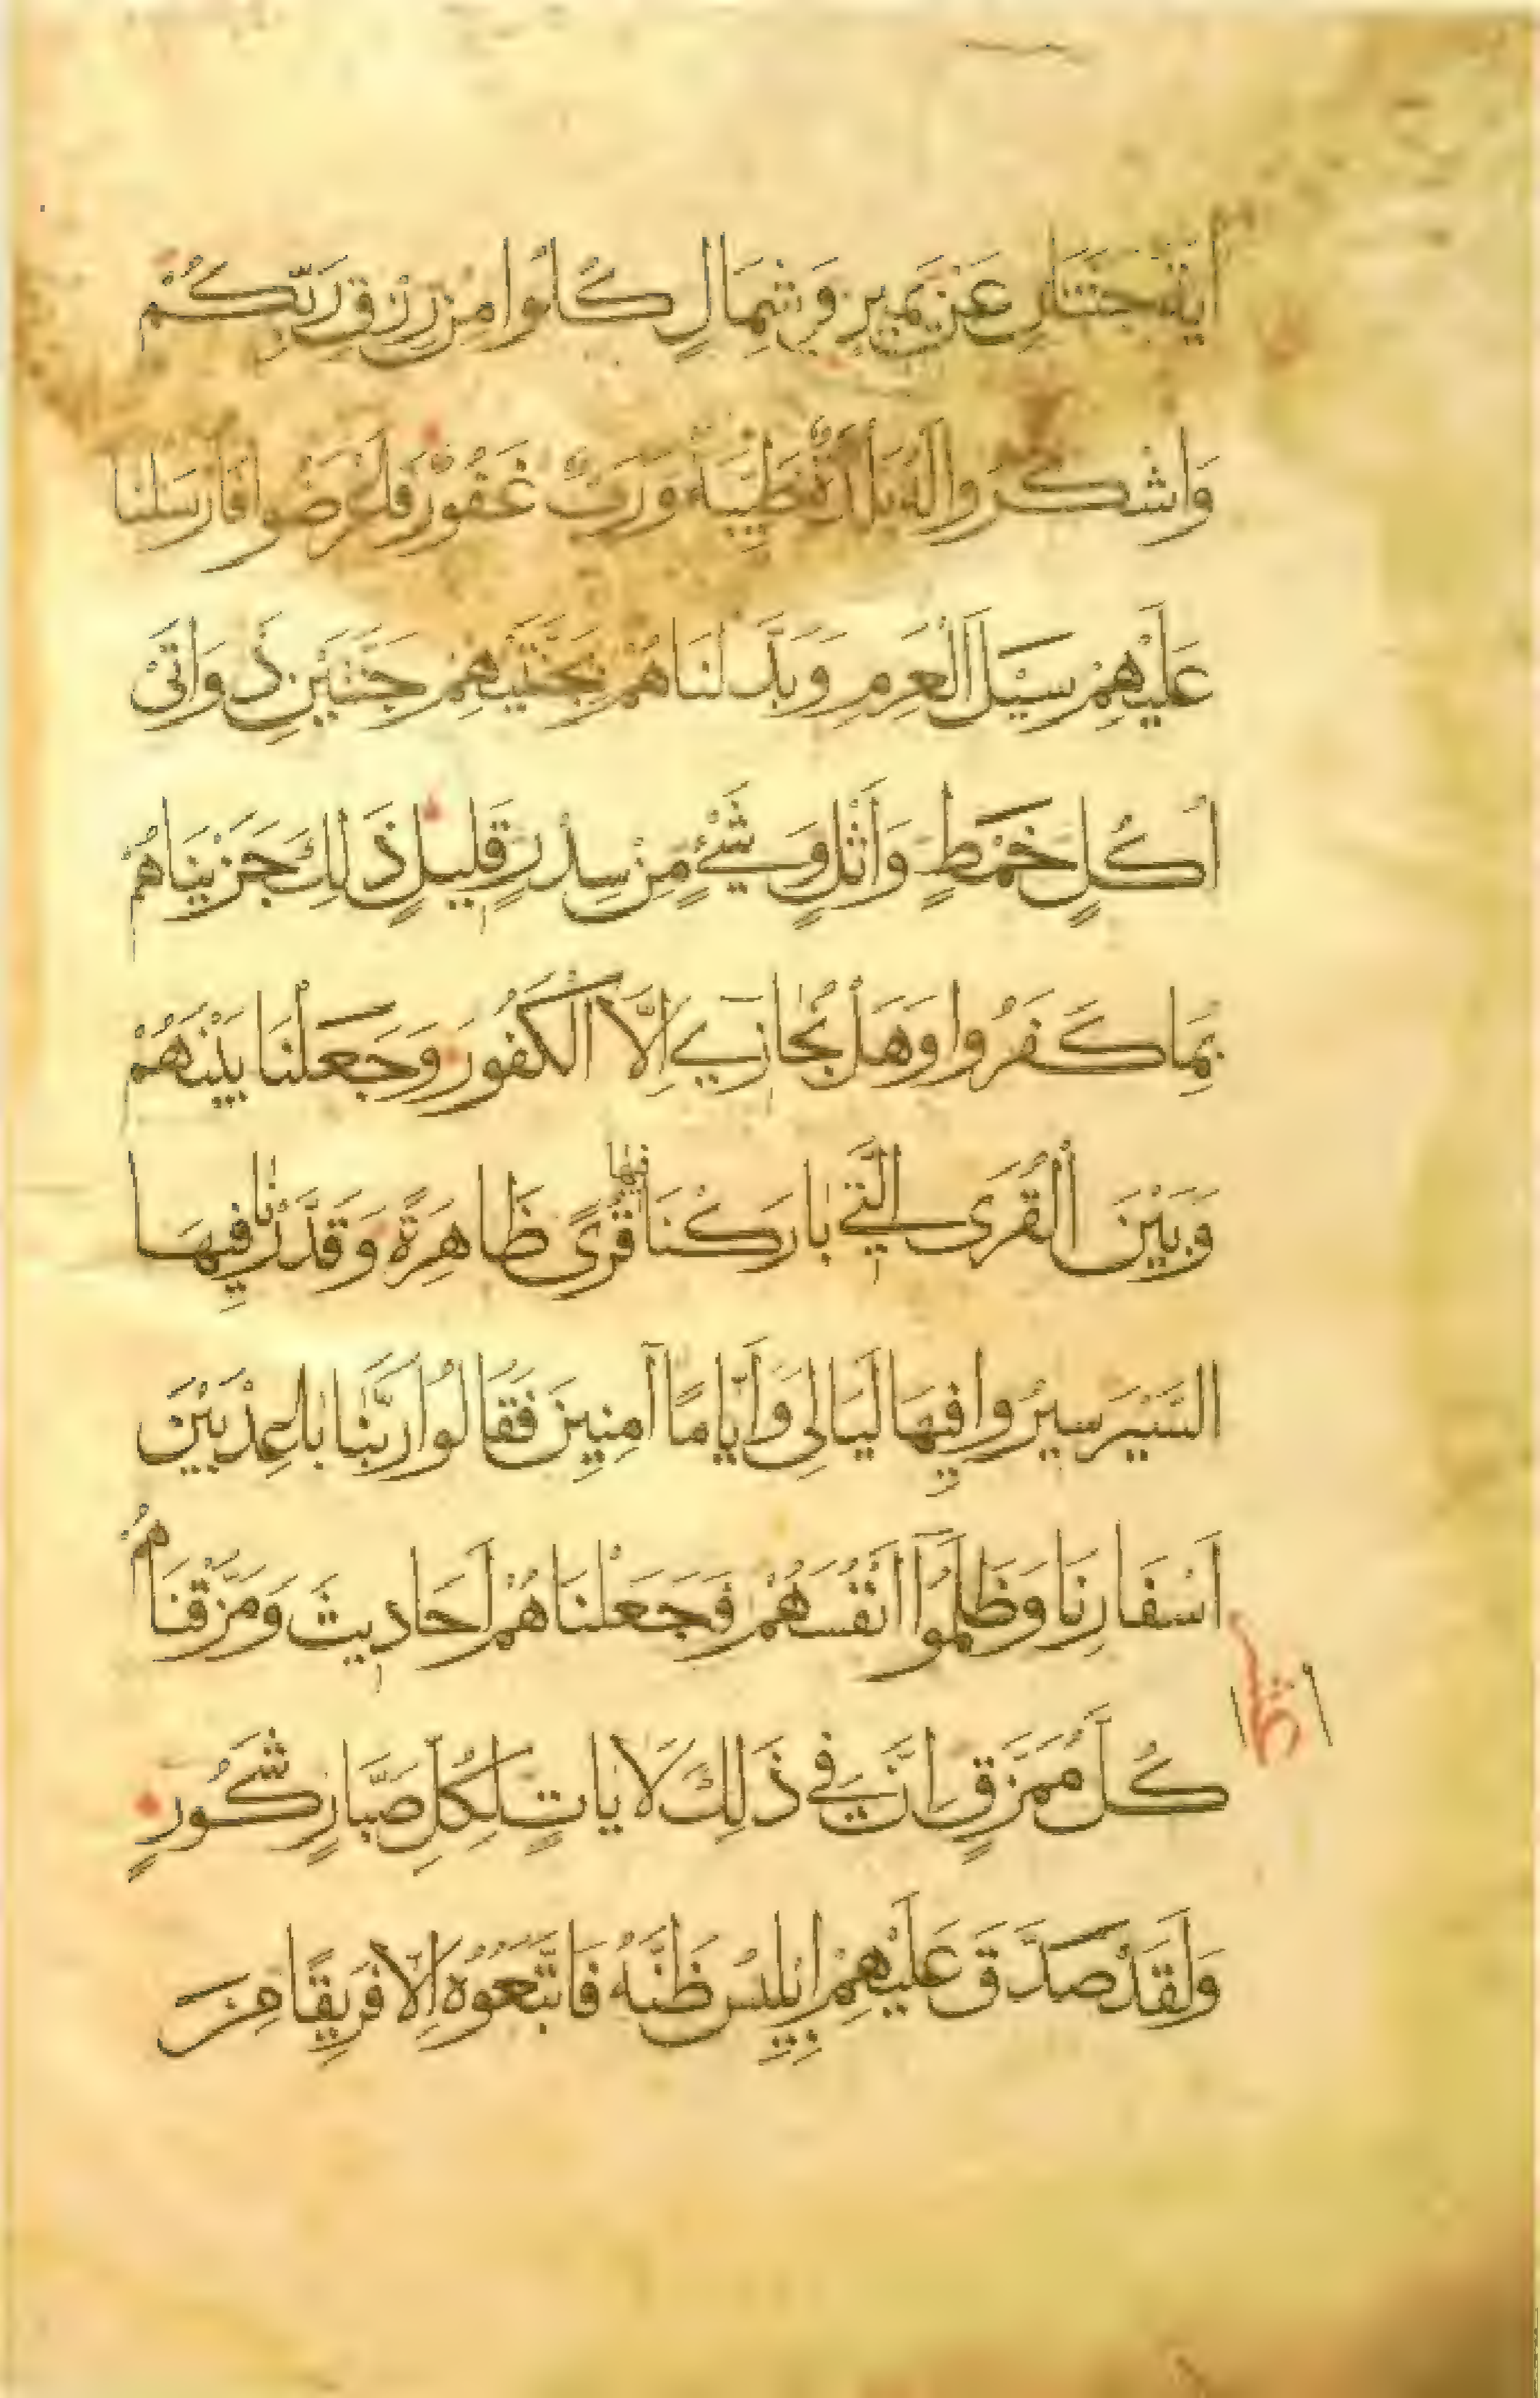 اٰيَةٌ جَنَّتَانِ عَنْ يَمِينٍ وَشِمَالٍ كُلُوا مِنْ رِزْقِ رَبِّكُمْ
وَاشْكُرُوا لَهُ بَلْدَةٌ طَيِّبَةٌ وَرَبٌّ غَفُورٌ فَاَعْرَضُوا فَاَرْسَلْنَا
عَلَيْهِمْ سَيْلَ الْعَرِمِ وَبَدَّلْنَاهُمْ بِجَنَّتَيْهِمْ جَنَّتَيْنِ ذَوَاتَىْ
اُكُلٍ خَمْطٍ وَاَثْلٍ وَشَىْءٍ مِنْ سِدْرٍ قَلِيلٍ ذَلِكَ جَزَيْنَاهُمْ
بِمَا كَفَرُوا وَهَلْ يُجَازَى اِلَّا الْكَفُورُ وَجَعَلْنَا بَيْنَهُمْ
وَبَيْنَ الْقُرَى الَّتِى بَارَكْنَا فِيهَا قُرًى ظَاهِرَةً وَقَدَّرْنَا فِيهَا
السَّيْرَ سِيرُوا فِيهَا لَيَالِىَ وَاَيَّامًا آمِنِينَ فَقَالُوا رَبَّنَا بَاعِدْ بَيْنَ
اَسْفَارِنَا وَظَلَمُوٓا اَنْفُسَهُمْ فَجَعَلْنَاهُمْ اَحَادِيثَ وَمَزَّقْنَاهُمْ
كُلَّ مُمَزَّقٍ اِنَّ فِى ذَلِكَ لَايَاتٍ لِكُلِّ صَبَّارٍ شَكُورٍ
وَلَقَدْ صَدَّقَ عَلَيْهِمْ اِبْلِيسُ ظَنَّهُ فَاتَّبَعُوهُ اِلَّا فَرِيقًا مِنَ